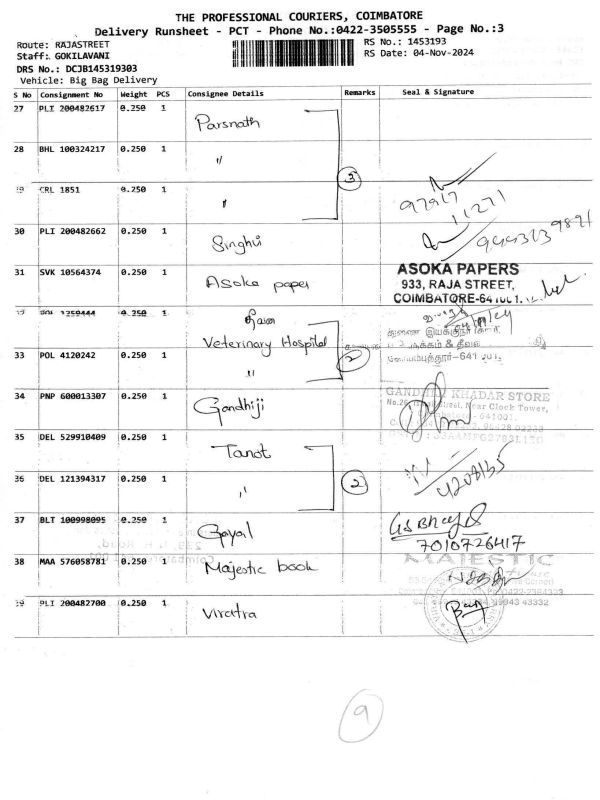 THE PROFESSIONAL COURIERS, COIMBATORE
Delivery Runsheet - PCT - Phone No.:0422-3505555 - Page No.:3
Route: RAJASTREET
RS No.: 1453193
Staff: GOKILAVANI
RS Date: 04-Nov-2024
DRS No.: DCJB145319303
Vehicle: Big Bag Delivery
S No Consignment No Weight PCS Consignee Details Remarks Seal & Signature
27 PLI 200482617 0.250 1 Parsnath
28 BHL 100324217 0.250 1 〃
3
CRL 1851 0.250 1 〃
97917
11271
30 PLI 200482662 0.250 1 Singhvi
31 SVK 10564374 0.250 1 Asoka paper
ASOKA PAPERS
933, RAJA STREET,
COIMBATORE-641001.
1259444 0.250 1
Veterinary Hospital
2
33 POL 4120242 0.250 1 〃
34 PNP 600013307 0.250 1 Gandhiji
GANDHIJI KHADAR STORE
Near Clock Tower,
35 DEL 529910409 0.250 1 Tanot
2
36 DEL 121394317 0.250 1 〃
37 BLT 100998095 0.250 1 Goyal
7010726417
38 MAA 576058781 0.250 1 Majestic book
MAJESTIC
PLI 200482700 0.250 1
9